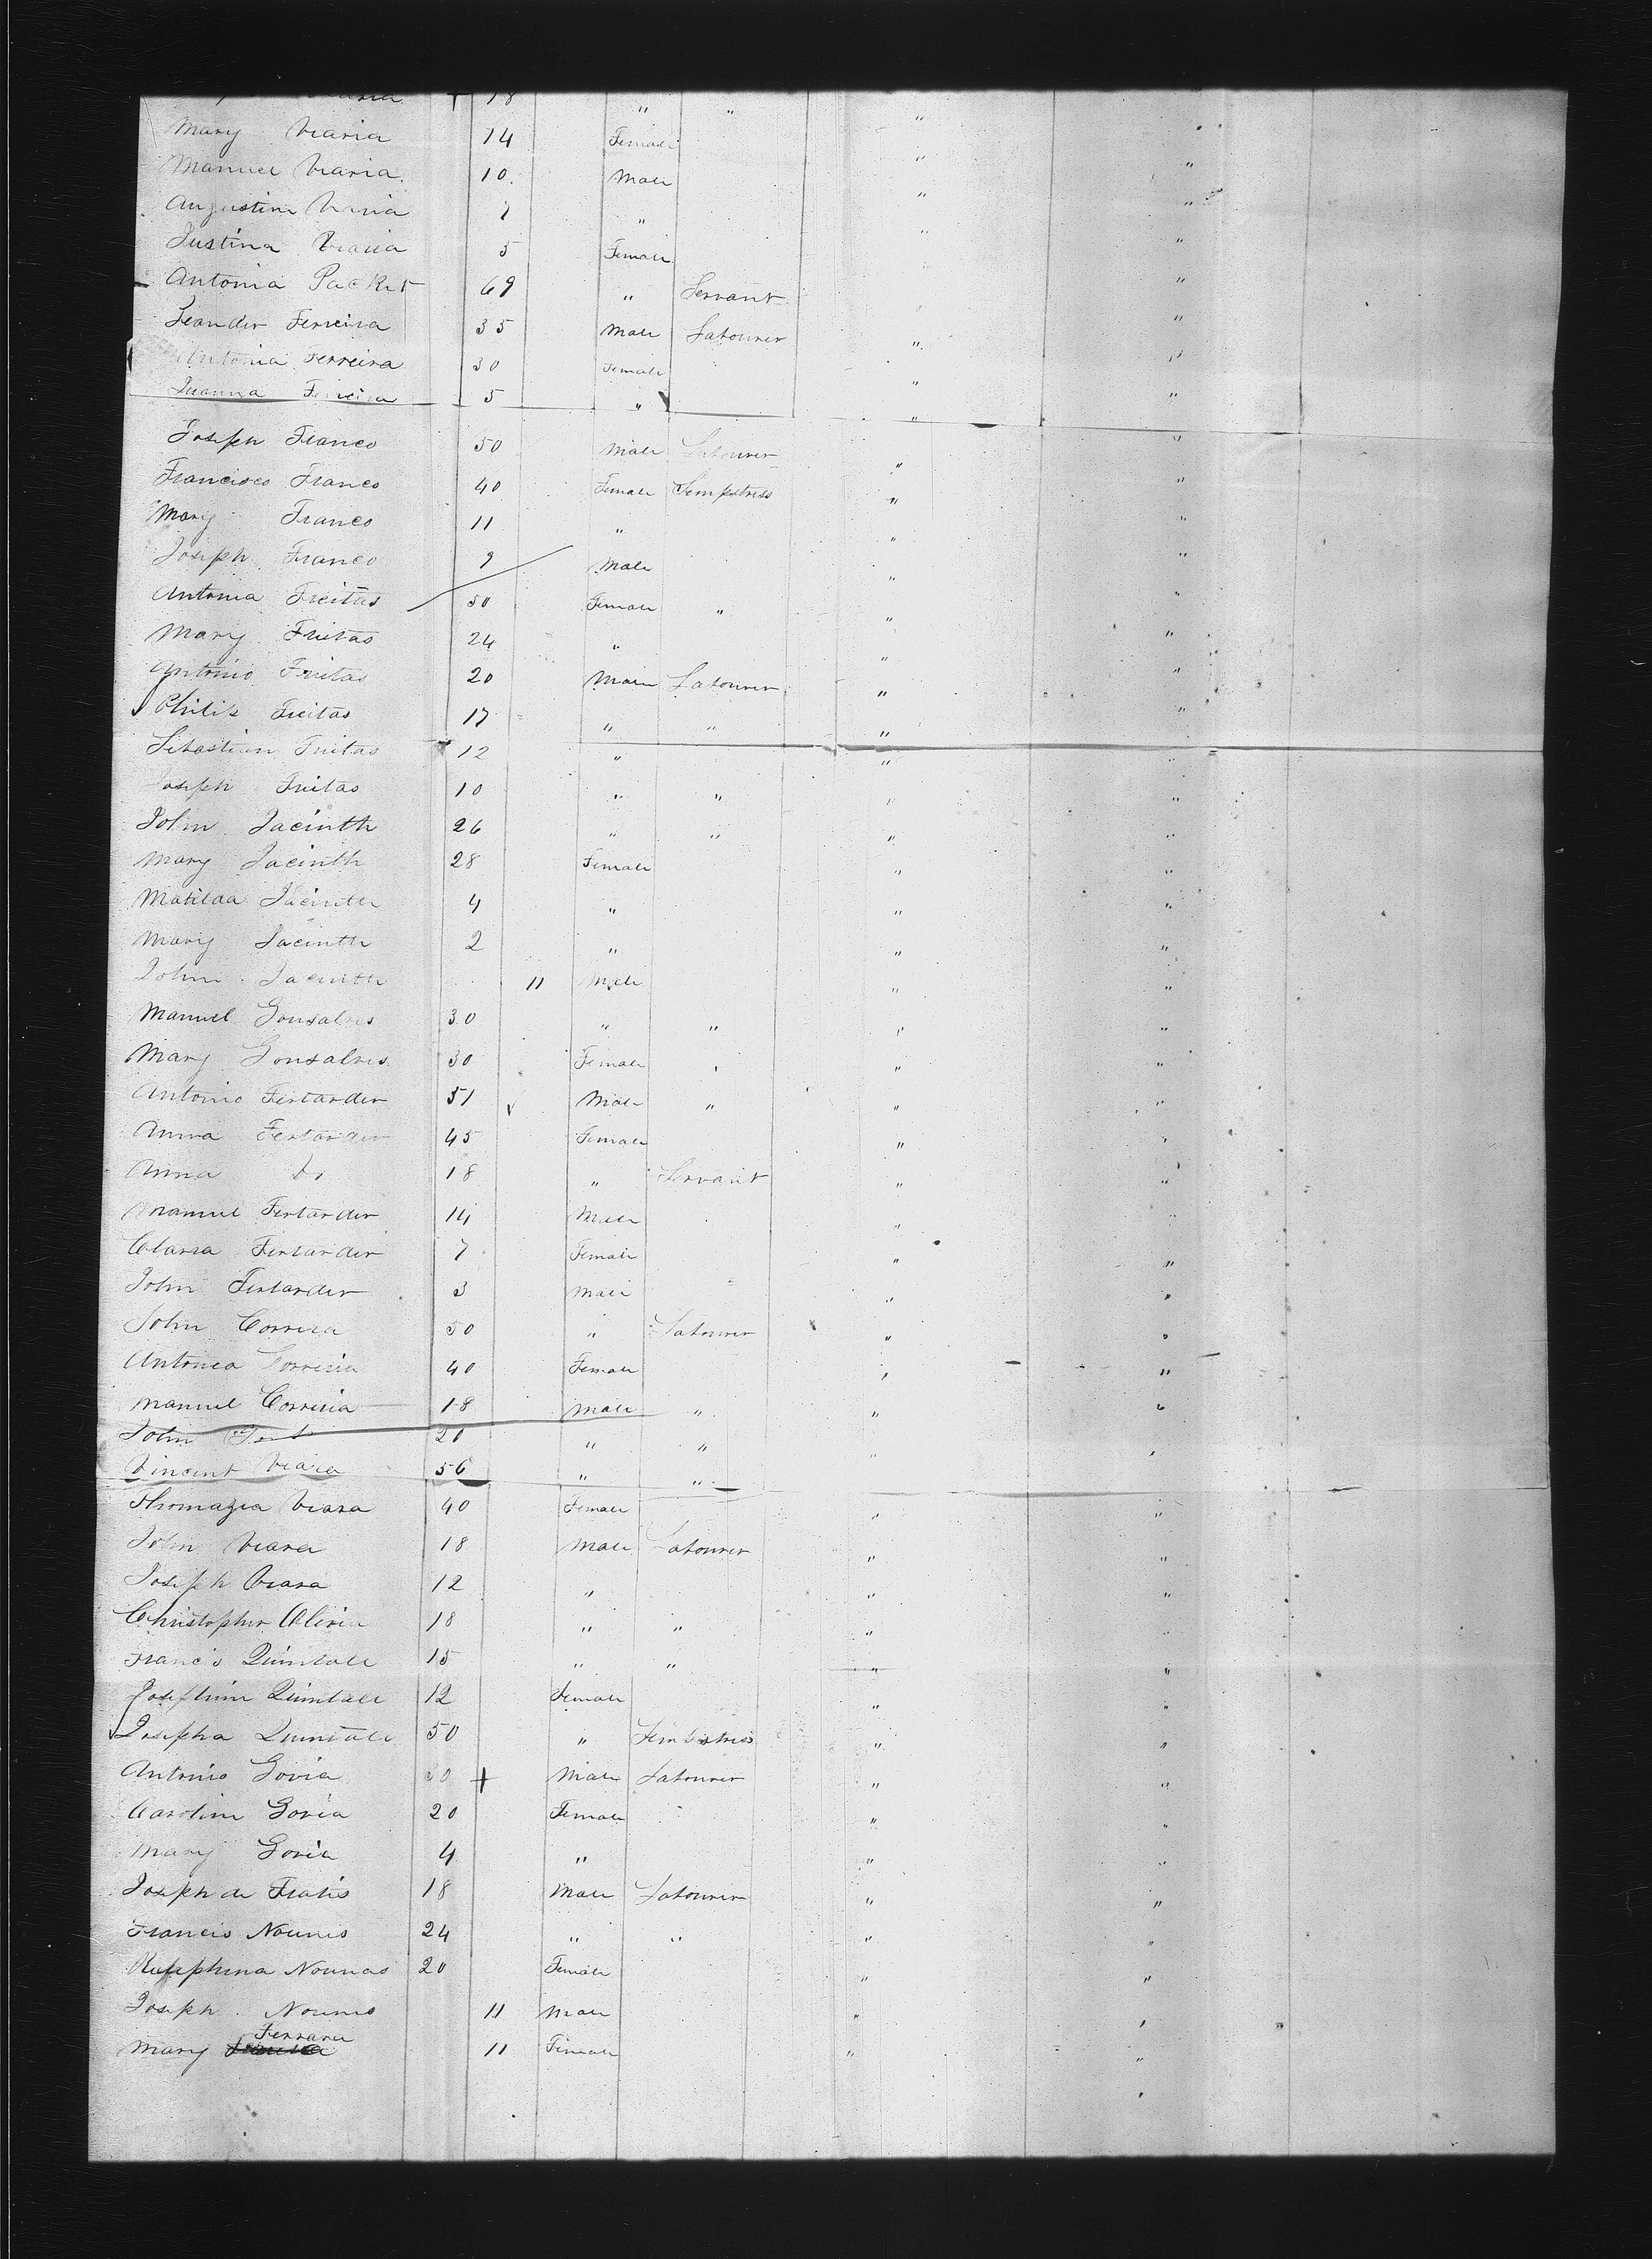 18 " " "
Mary Viaria 14 Female " "
Manuel Viaria 10 Male " "
Augustin Viaria 7 " " "
Justina Viaria 5 Female " "
Antonia Packet 69 " Servant "
Leander Ferreira 35 Male Labourer " "
Antonia Ferreira 30 Female " "
Juanna Ferreira 5 " " "
Joseph Franco 50 Male Labourer " "
Francisco Franco 40 Female Sempstress " "
Mary Franco 11 " " "
Joseph Franco 9 Male " "
Antonia Freitas 50 Female " " "
Mary Freitas 24 " " "
Antonio Freitas 20 Male Labourer " "
Philip Freitas 17 " " " "
Sebastian Freitas 12 " "
Joseph Freitas 10 " " " "
John Jacinth 26 " " " "
Mary Jacinth 28 Female " "
Matilda Jacinth 4 " " "
Mary Jacinth 2 " " "
John Jacinth 11 Male " "
Manuel Gonsalves 30 " " " "
Mary Gonsalves 30 Female " "
Antonio Fertander 51 Male " " "
Anna Fertander 45 Female " "
Anna Do 18 " Servant " "
Manuel Fertander 14 Male " "
Clarra Fertander 7 Female " "
John Fertander 3 Male " "
John Correia 50 " Labourer " "
Antonia Correia 40 Female " "
Manuel Correia 18 Male " " "
John 20 " " " "
Vincent Viara 56 " "
Thomazia Viara 40 Female " "
John Viara 18 Male Labourer " "
Joseph Viara 12 " " "
Christopher Oliria 18 " " " "
Francis Quintale 15 " " " "
Josephine Quintale 12 Female " "
Josepha Quintale 50 " Sempstress " "
Antonio Govia 30 + Male Labourer " "
Caroline Govia 20 Female " "
Mary Govia 4 " " "
Joseph de Fratis 18 Male Labourer " "
Francis Nounes 24 " " " "
Nounas 20 Female " "
Joseph Nounes 11 Male " "
Ferrara
Mary 11 Female " "